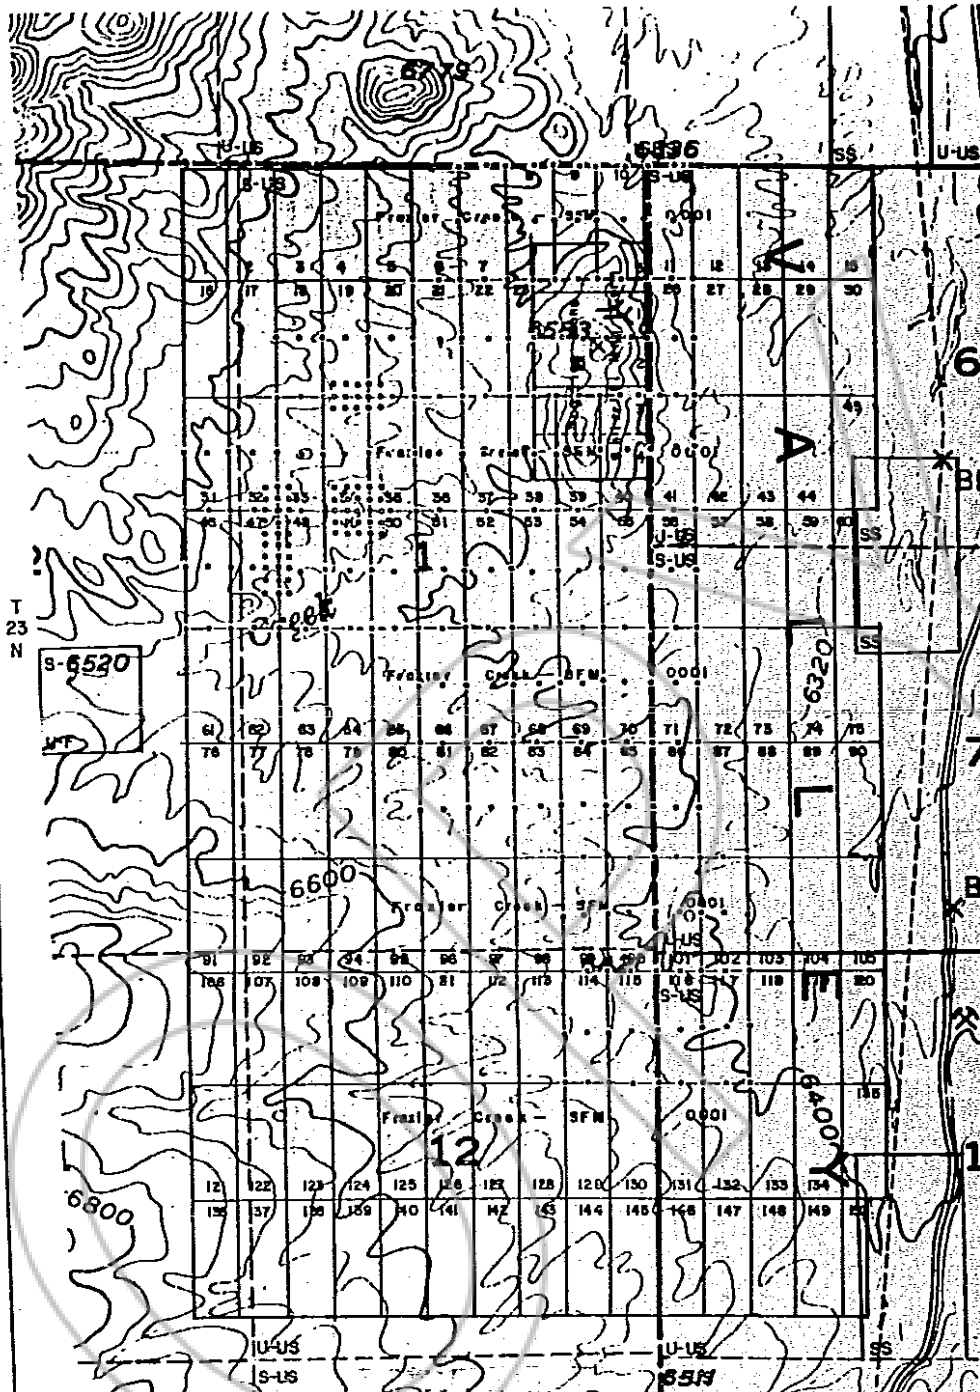 6779
U-US 6536 SS U-US
S-US 10 S-US
Frazier Creek - SFM 0.001
V
2 3 4 5 6 7 11 12 13 14 15
16 17 18 19 20 21 22 23 26 27 28 29 30
6
45
A
Frazier Creek - SFM 0.001
31 32 33 35 36 37 38 39 40 41 42 43 44
46 47 48 50 51 52 53 54 55 56 57 58 59 60
U-US SS
S-US
1
T
23
N
L
SS
S-6520
6320
Frazier Creek - SFM 0.001
61 62 63 64 65 66 67 68 69 70 71 72 73 74 75
76 77 78 79 80 81 82 83 84 85 86 87 88 89 90
7
L
6600
B
Frazier Creek - SFM 0.001
U-US
91 92 93 94 95 96 97 98 99 101 102 103 104 105
106 107 108 109 110 81 112 113 114 115 116 117 118 120
S-US
E
6400
135
Frazier Creek - SFM 0.001
12
Y
1
121 122 123 124 125 126 127 128 129 130 131 132 133 134
136 137 138 139 140 141 142 143 144 145 146 147 148 149 150
6800
U-US U-US SS
S-US 6511